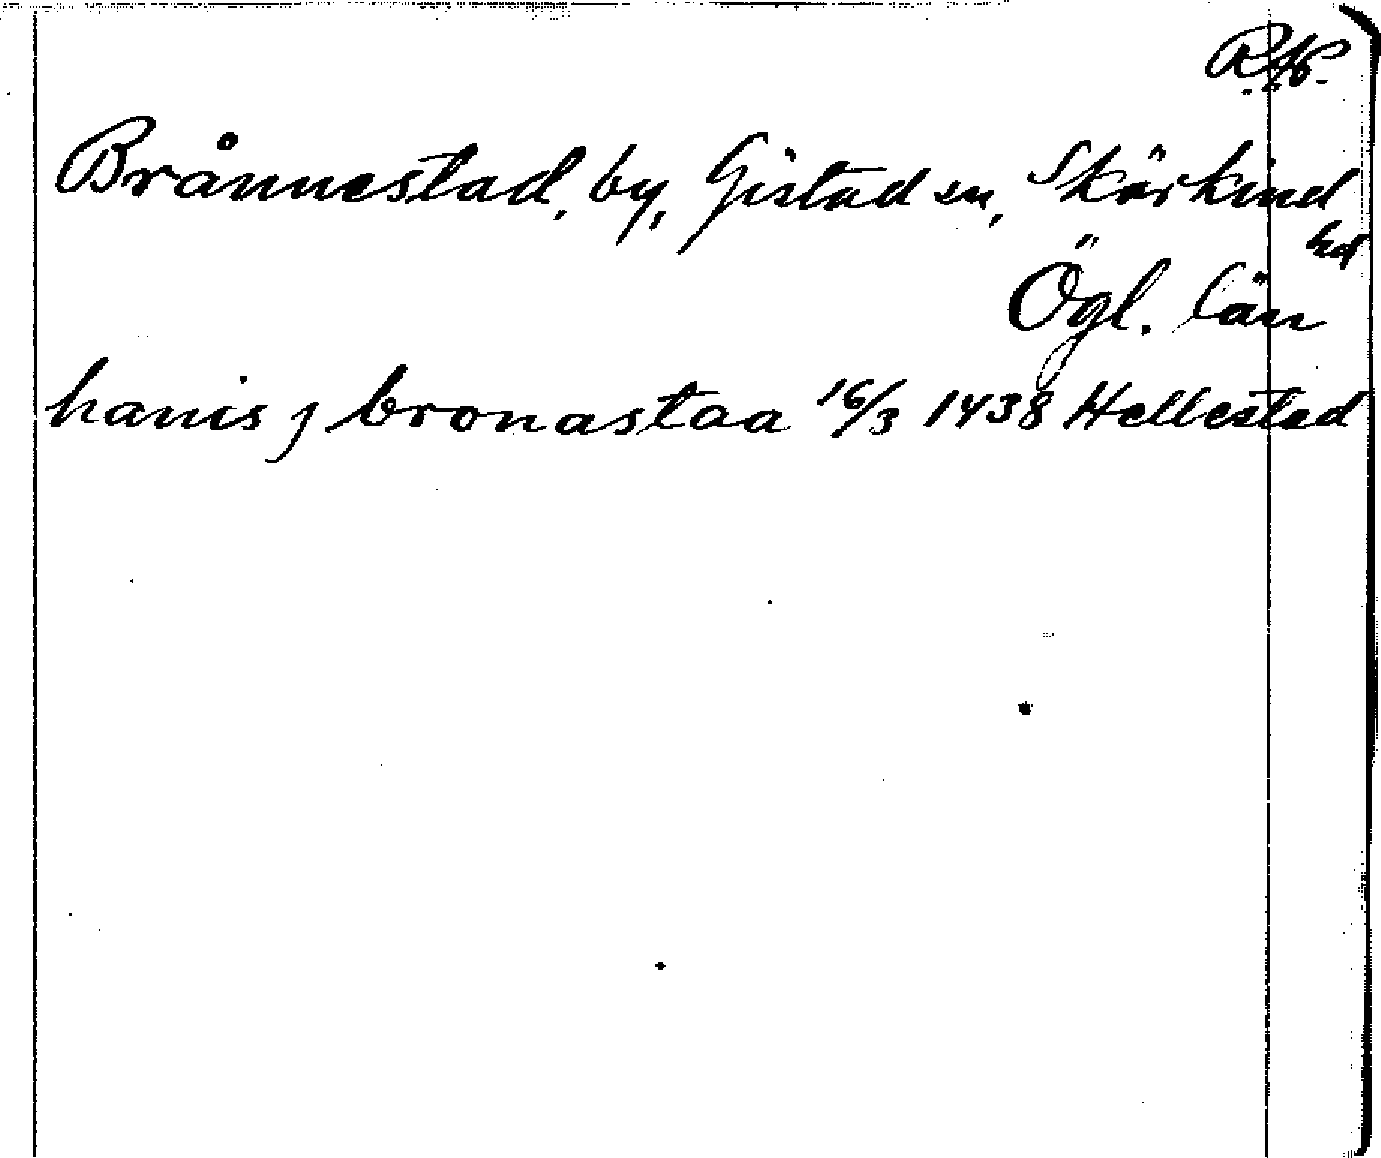 Brånnestad, by, Gistad sn, Skärkind
hd
Ögl. län
hanis j bronastaa 16/3 1438 Hellestad